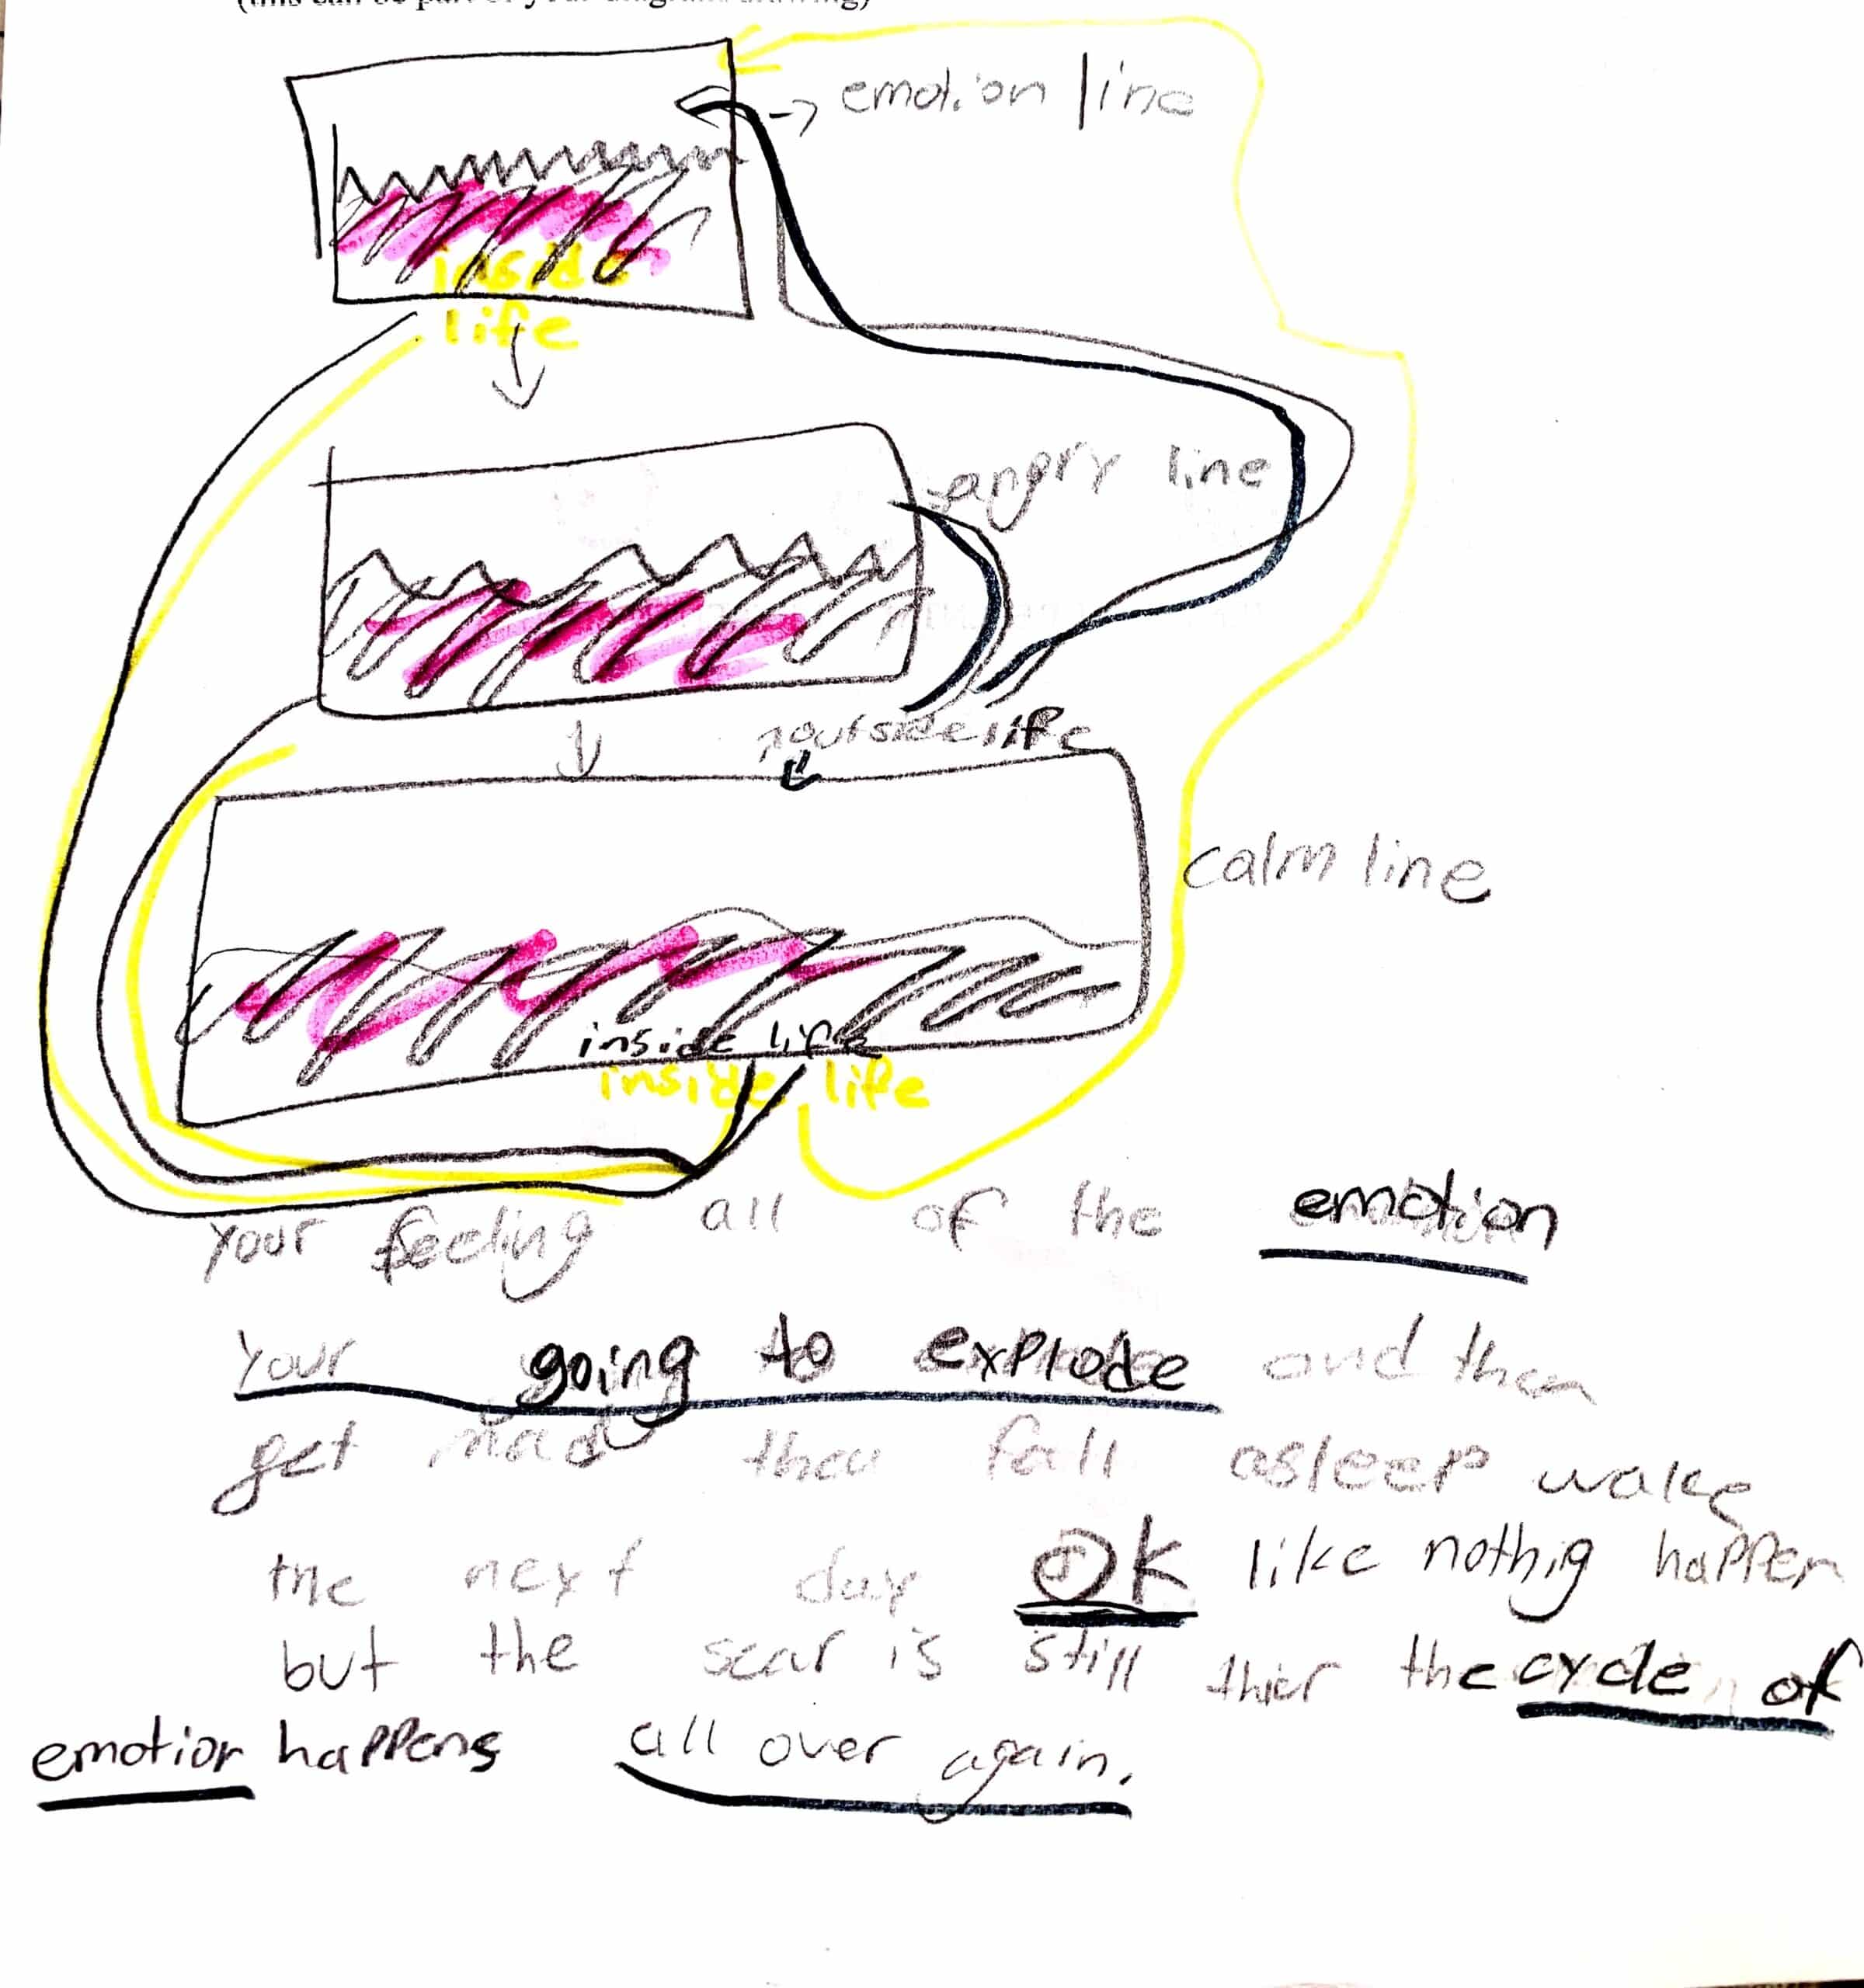 (this can be part of your diagram drawing)
-> emotion line
inside
life
angry line
outside life
calm line
inside life
inside life
Your feeling all of the emotion
Your going to explode and then
get mad then fall asleep wake
the next day OK like nothig happen
but the scar is still thier the cycle of
emotion happens all over again.